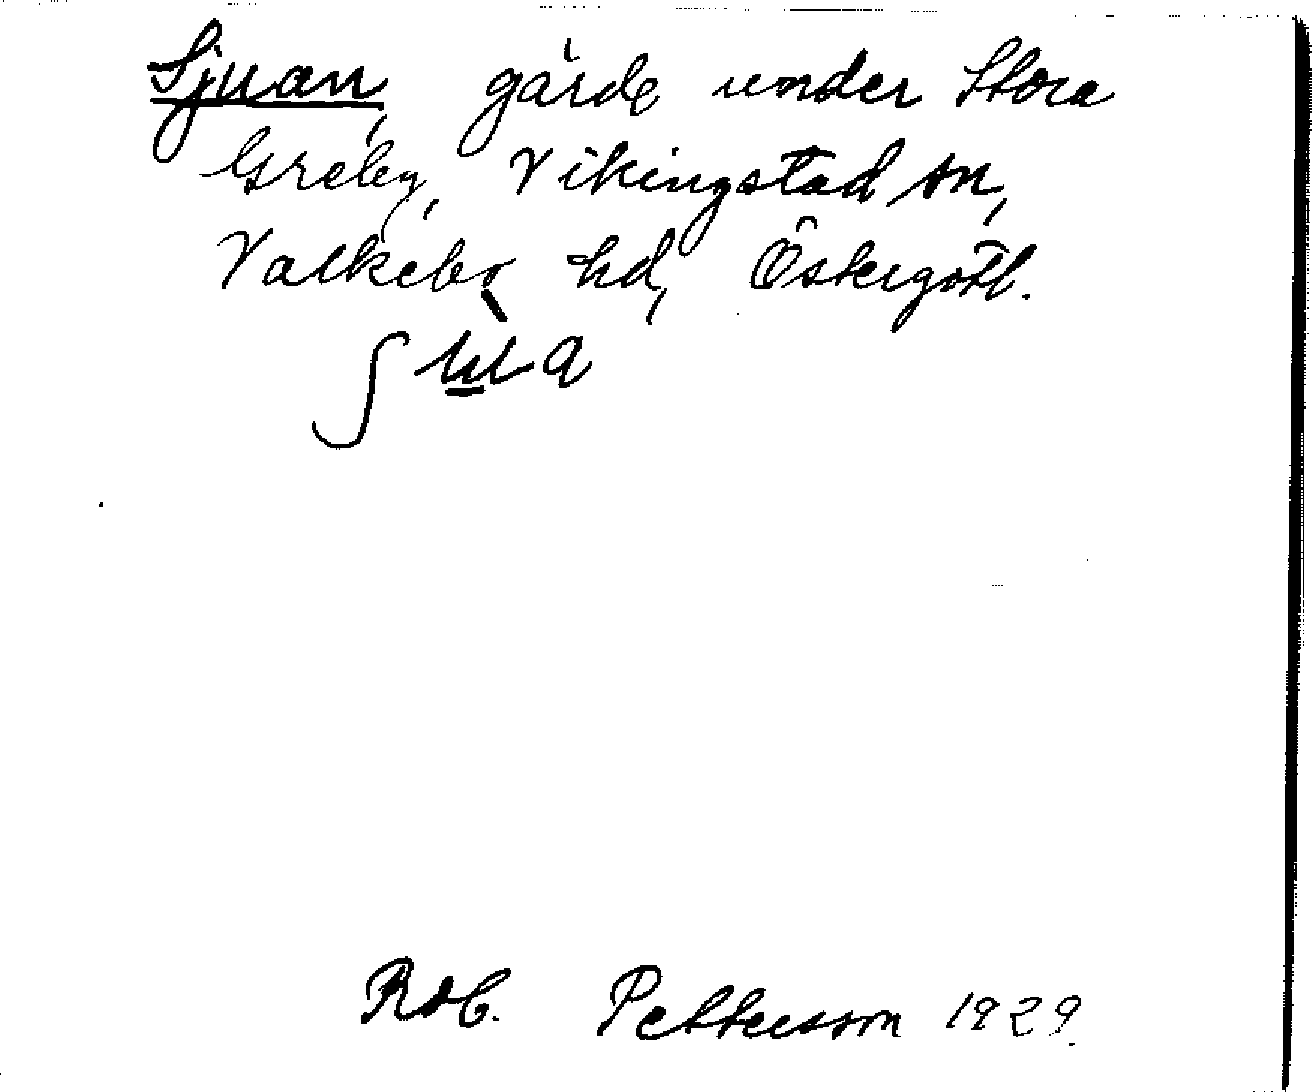 Sjuan, gärde under Stora
Greby, Vikingstad sn,
Valkebo hd, Östergötl.
ʃù̲a
Rob. Pettersson 1929.